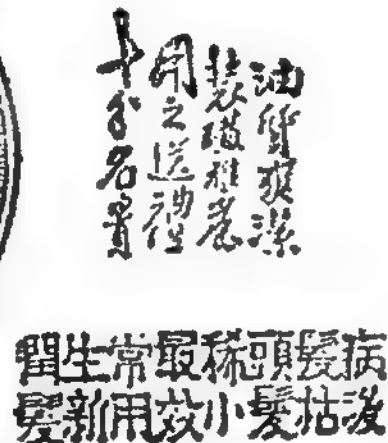 油質爽潔
裝璜雅麗
用之送禮
十分名貴
病後
髮枯
頭髮
稀小
最效
常用
生新
潤髮